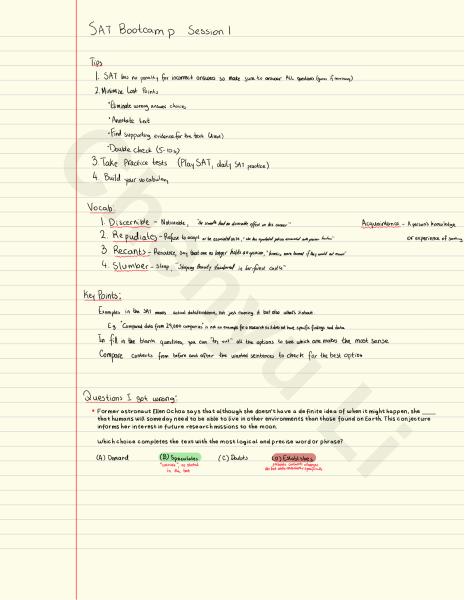 SAT Bootcamp Session 1
Tips
1. SAT has no penalty for incorrect answers so make sure to answer ALL questions (guess if necessary)
2. Minimize Lost Points
•Eliminate wrong answer choices
•Annotate text
•Find supporting evidence for the text (4 text)
•Double check (5-10s)
3. Take Practice tests (PlaySAT, daily SAT practice)
4. Build your vocabulary
Vocab:
1. Discernible - Noticeable, "the smooth had no discernible effect on this
Acquaintance - A person's knowledge
2. Repudiates - Refuse to accept or be associated with,
or experience of
3. Recants - Renounce, say that one no longer holds an opinion, "heretics were burned if they would not recant"
4. Slumber - sleep, "Sleeping Beauty slumbered in her
Key Points:
Examples in the SAT means actual data/evidence, not just naming it but also what's it about
E.g "Compared data from 29,000 companies" is not an example for a research as it does not have specific findings and data
In fill in the blank question, you can "try out" all the options to see which one makes the most sense
Compare contexts from before and after the wanted sentences to check for the best option
Questions I got wrong:
• Former astronaut Ellen Ochoa says that although she doesn't have a definite idea of when it might happen, she ____
that humans will someday need to be able to live in other environments than those found on Earth. This conjecture
informs her interest in future research missions to the moon.
Which choice completes the text with the most logical and precise word or phrase?
(A) Demand (B) Speculates (C) Doubts (D) Establishes
as stated
in the text
Chenyu Li